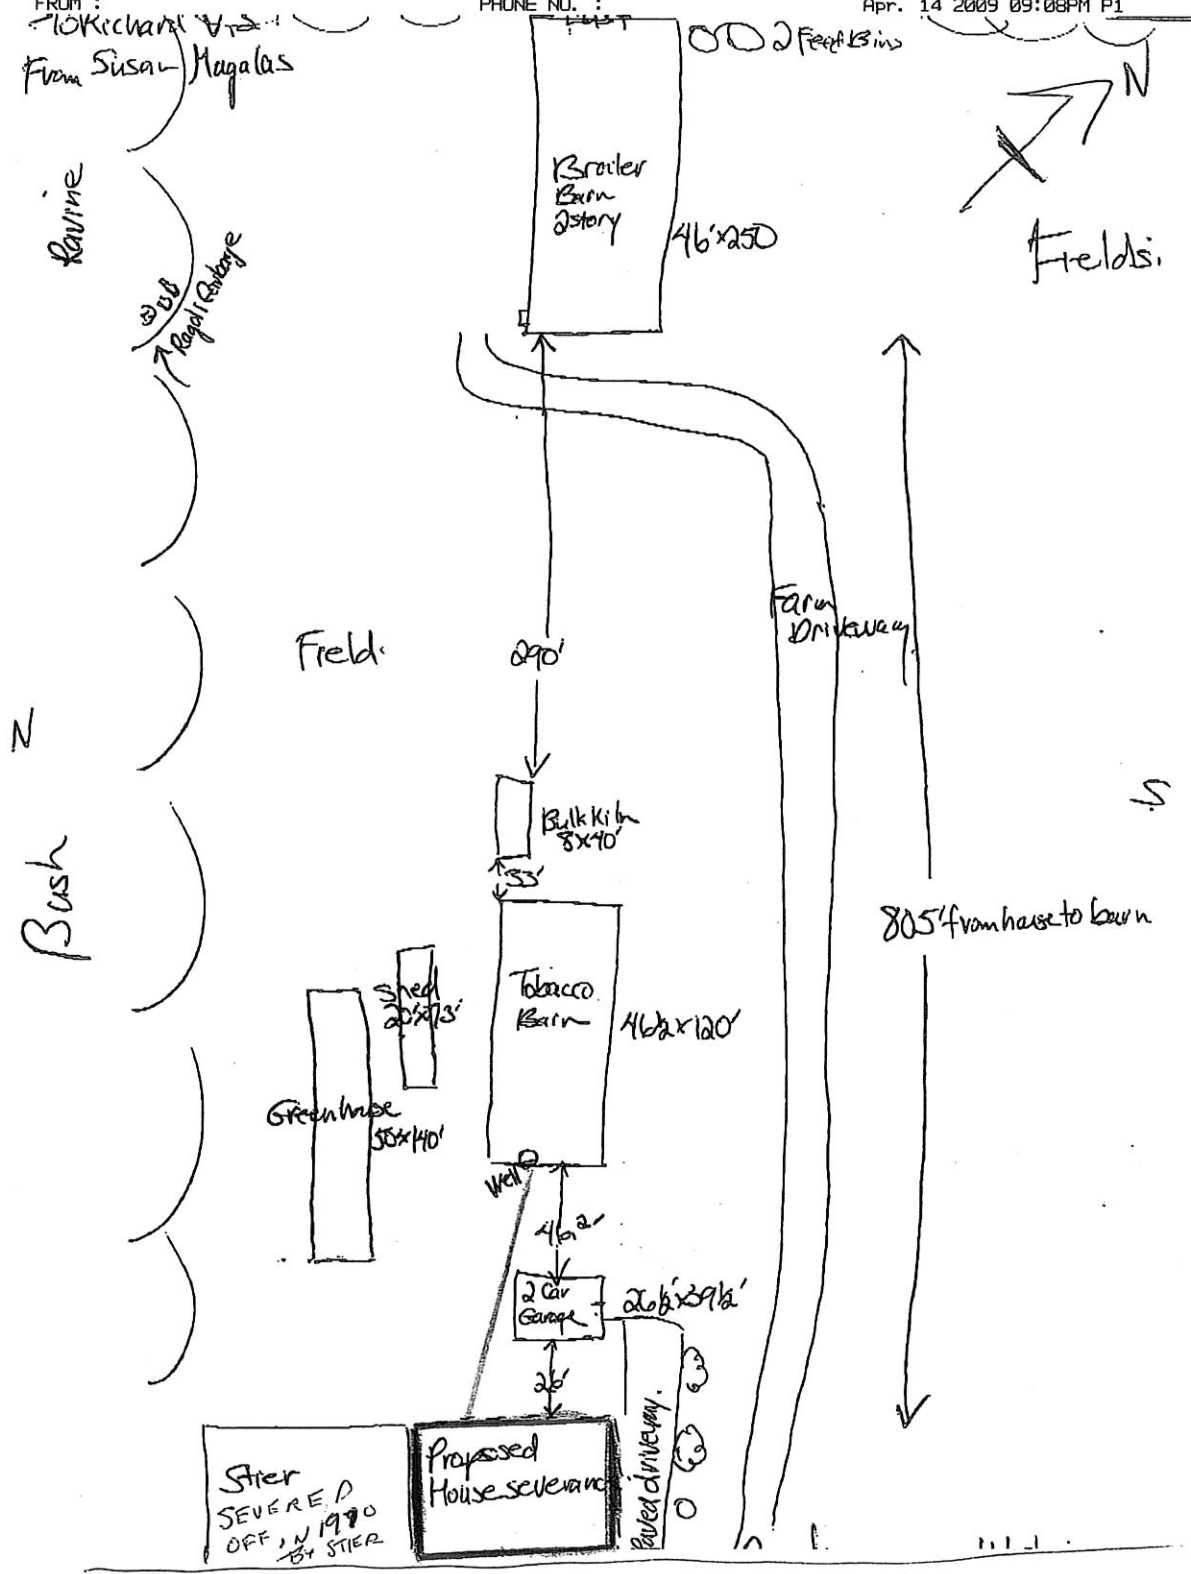 FROM :
PHONE NO. :
Apr. 14 2009 09:08PM P1
To Richard
From Susan Magalas
2 Feed Bins
N
Ravine
Broiler
Barn
2story
46'x250
Fields.
Garbage
Field.
290'
Farm
Driveway
N
Bulk Kiln
8x40'
33'
S
Bush
805' from house to barn
Shed
20'x73'
Tobacco
Barn
46½x120'
Greenhouse
35x140'
Well
2 Car
Garage
26½'x39½'
26'
Paved driveway.
Stier
SEVERED
OFF IN 1990
BY STIER
Proposed
House severance